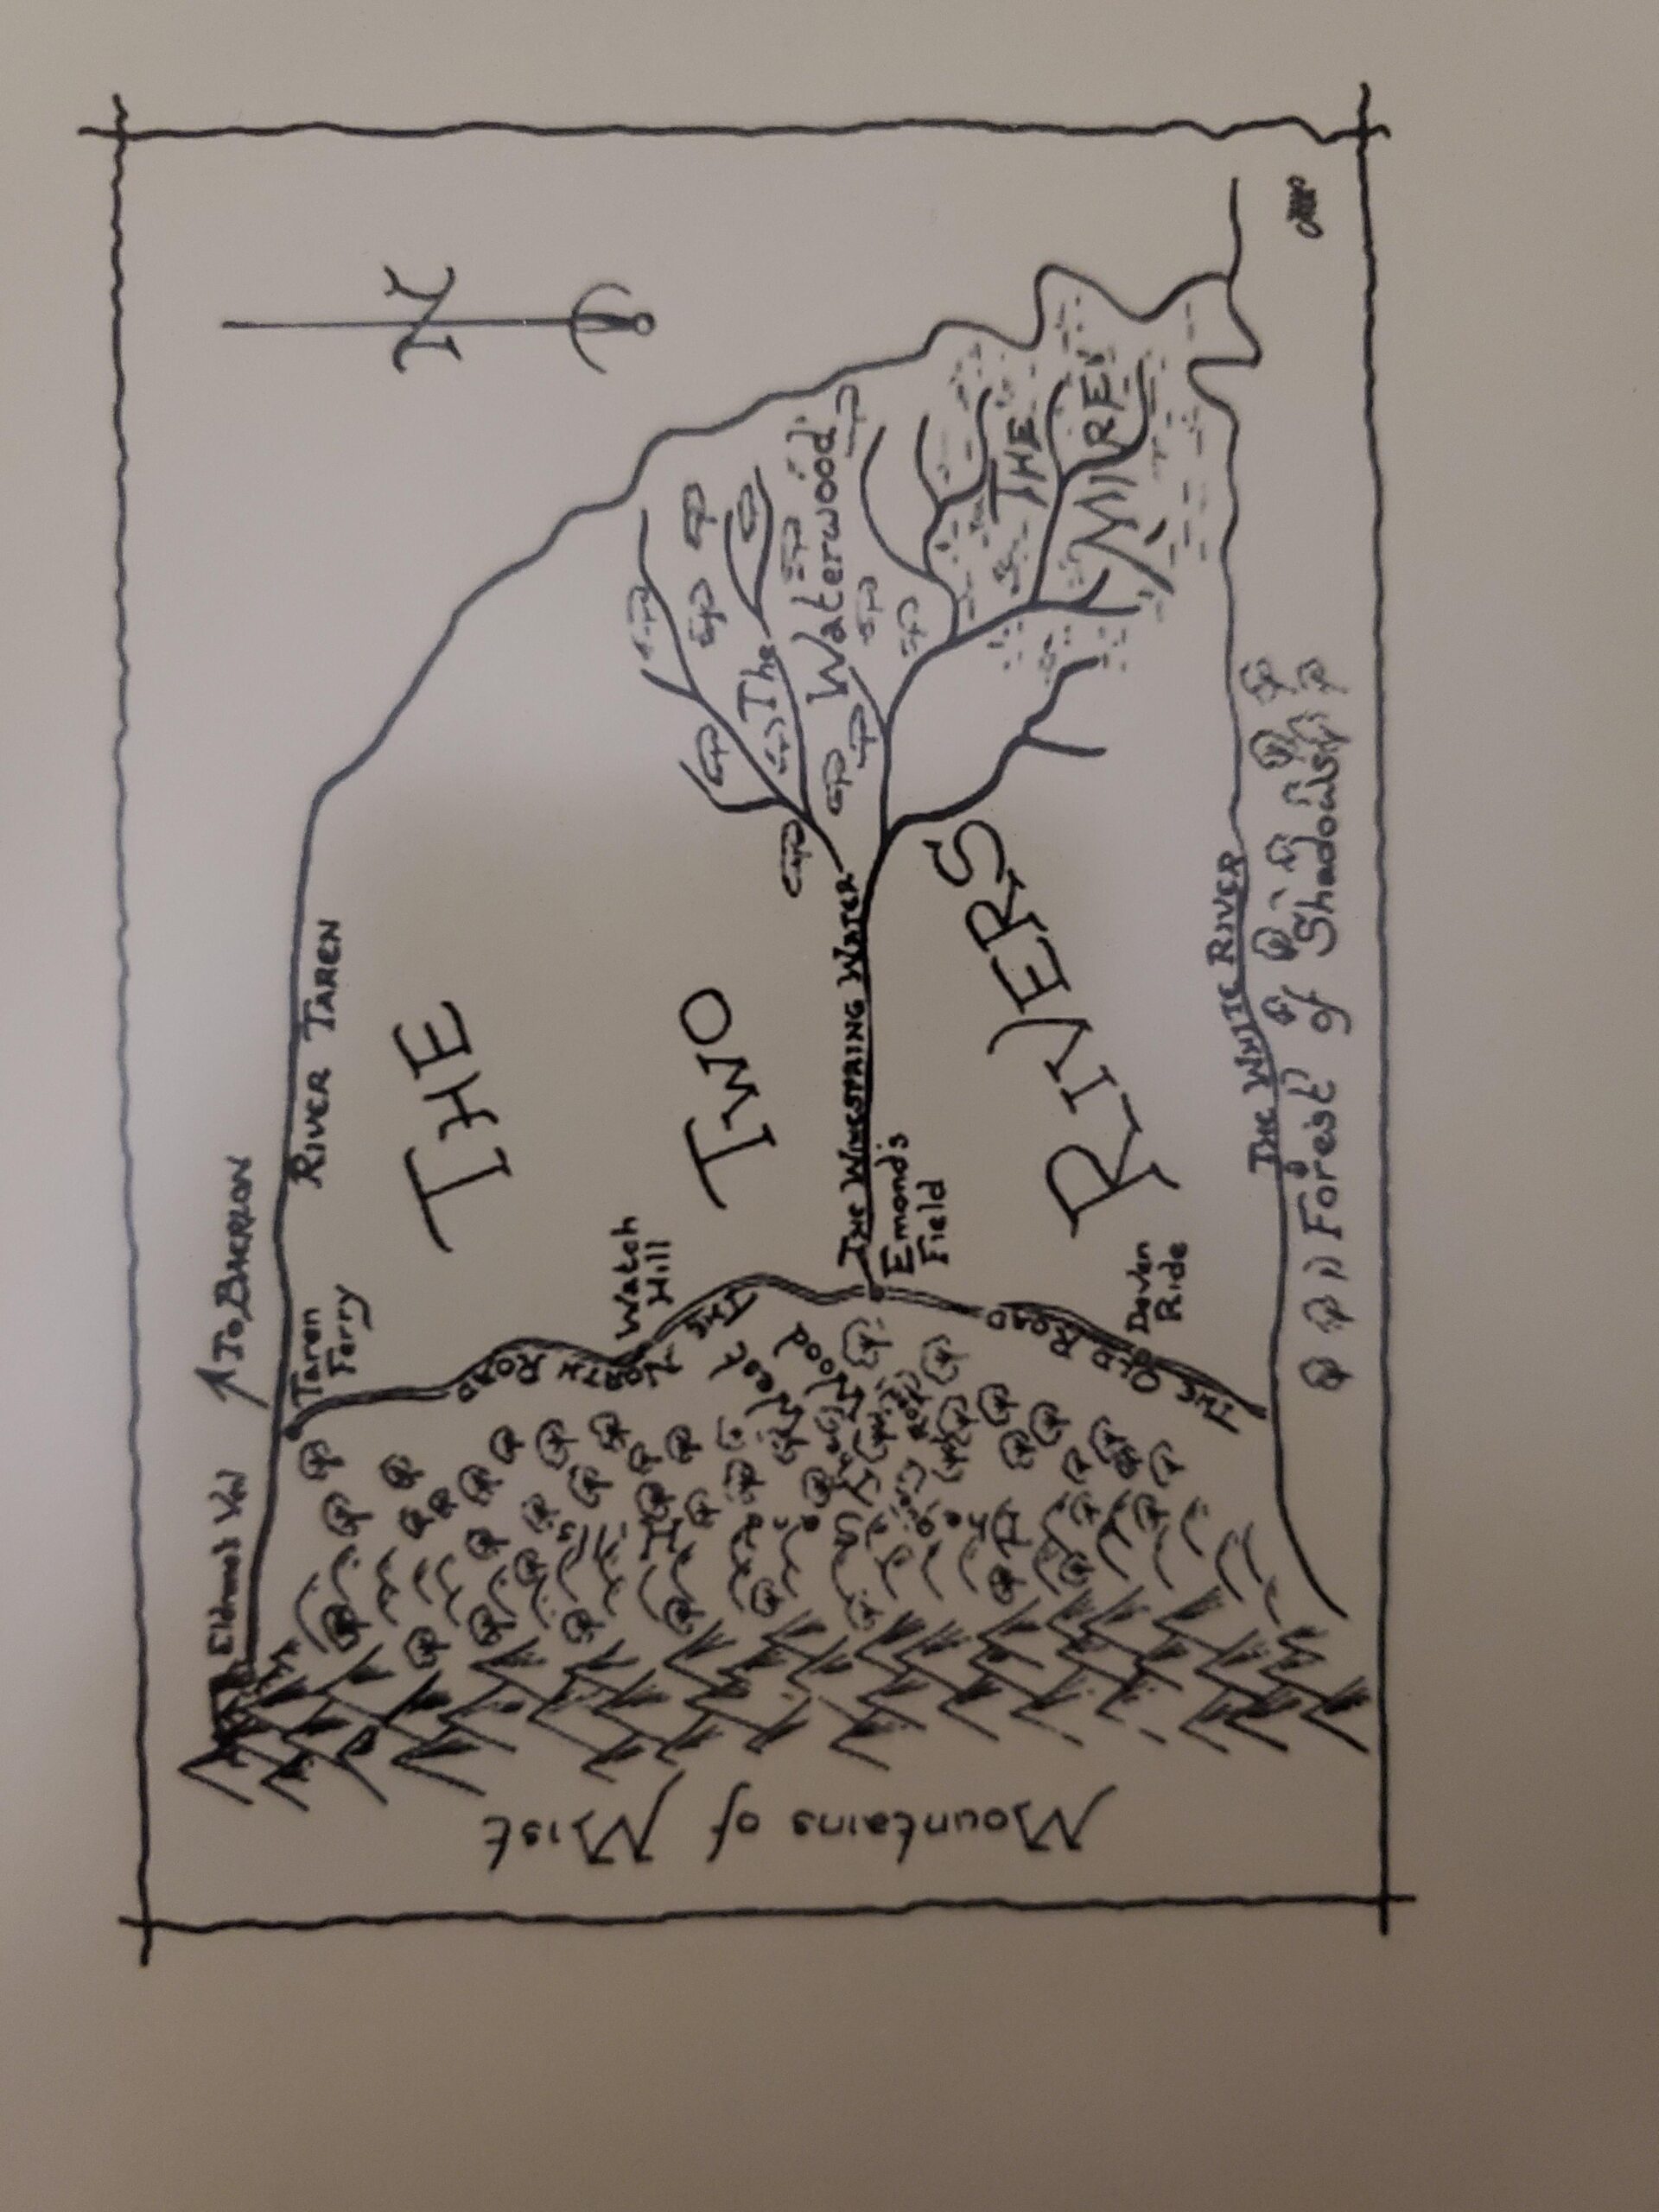 To Baerlon
Taren
Ferry
RIVER TAREN
THE
TWO
RIVERS
Watch
Hill
THE NORTH ROAD
West
Wood
THE WINESPRING WATER
Emond's
Field
The
Waterwood
THE
MIRE
THE OLD ROAD
Deven
Ride
THE WHITE RIVER
Forest of Shadows
Mountains of Mist
N